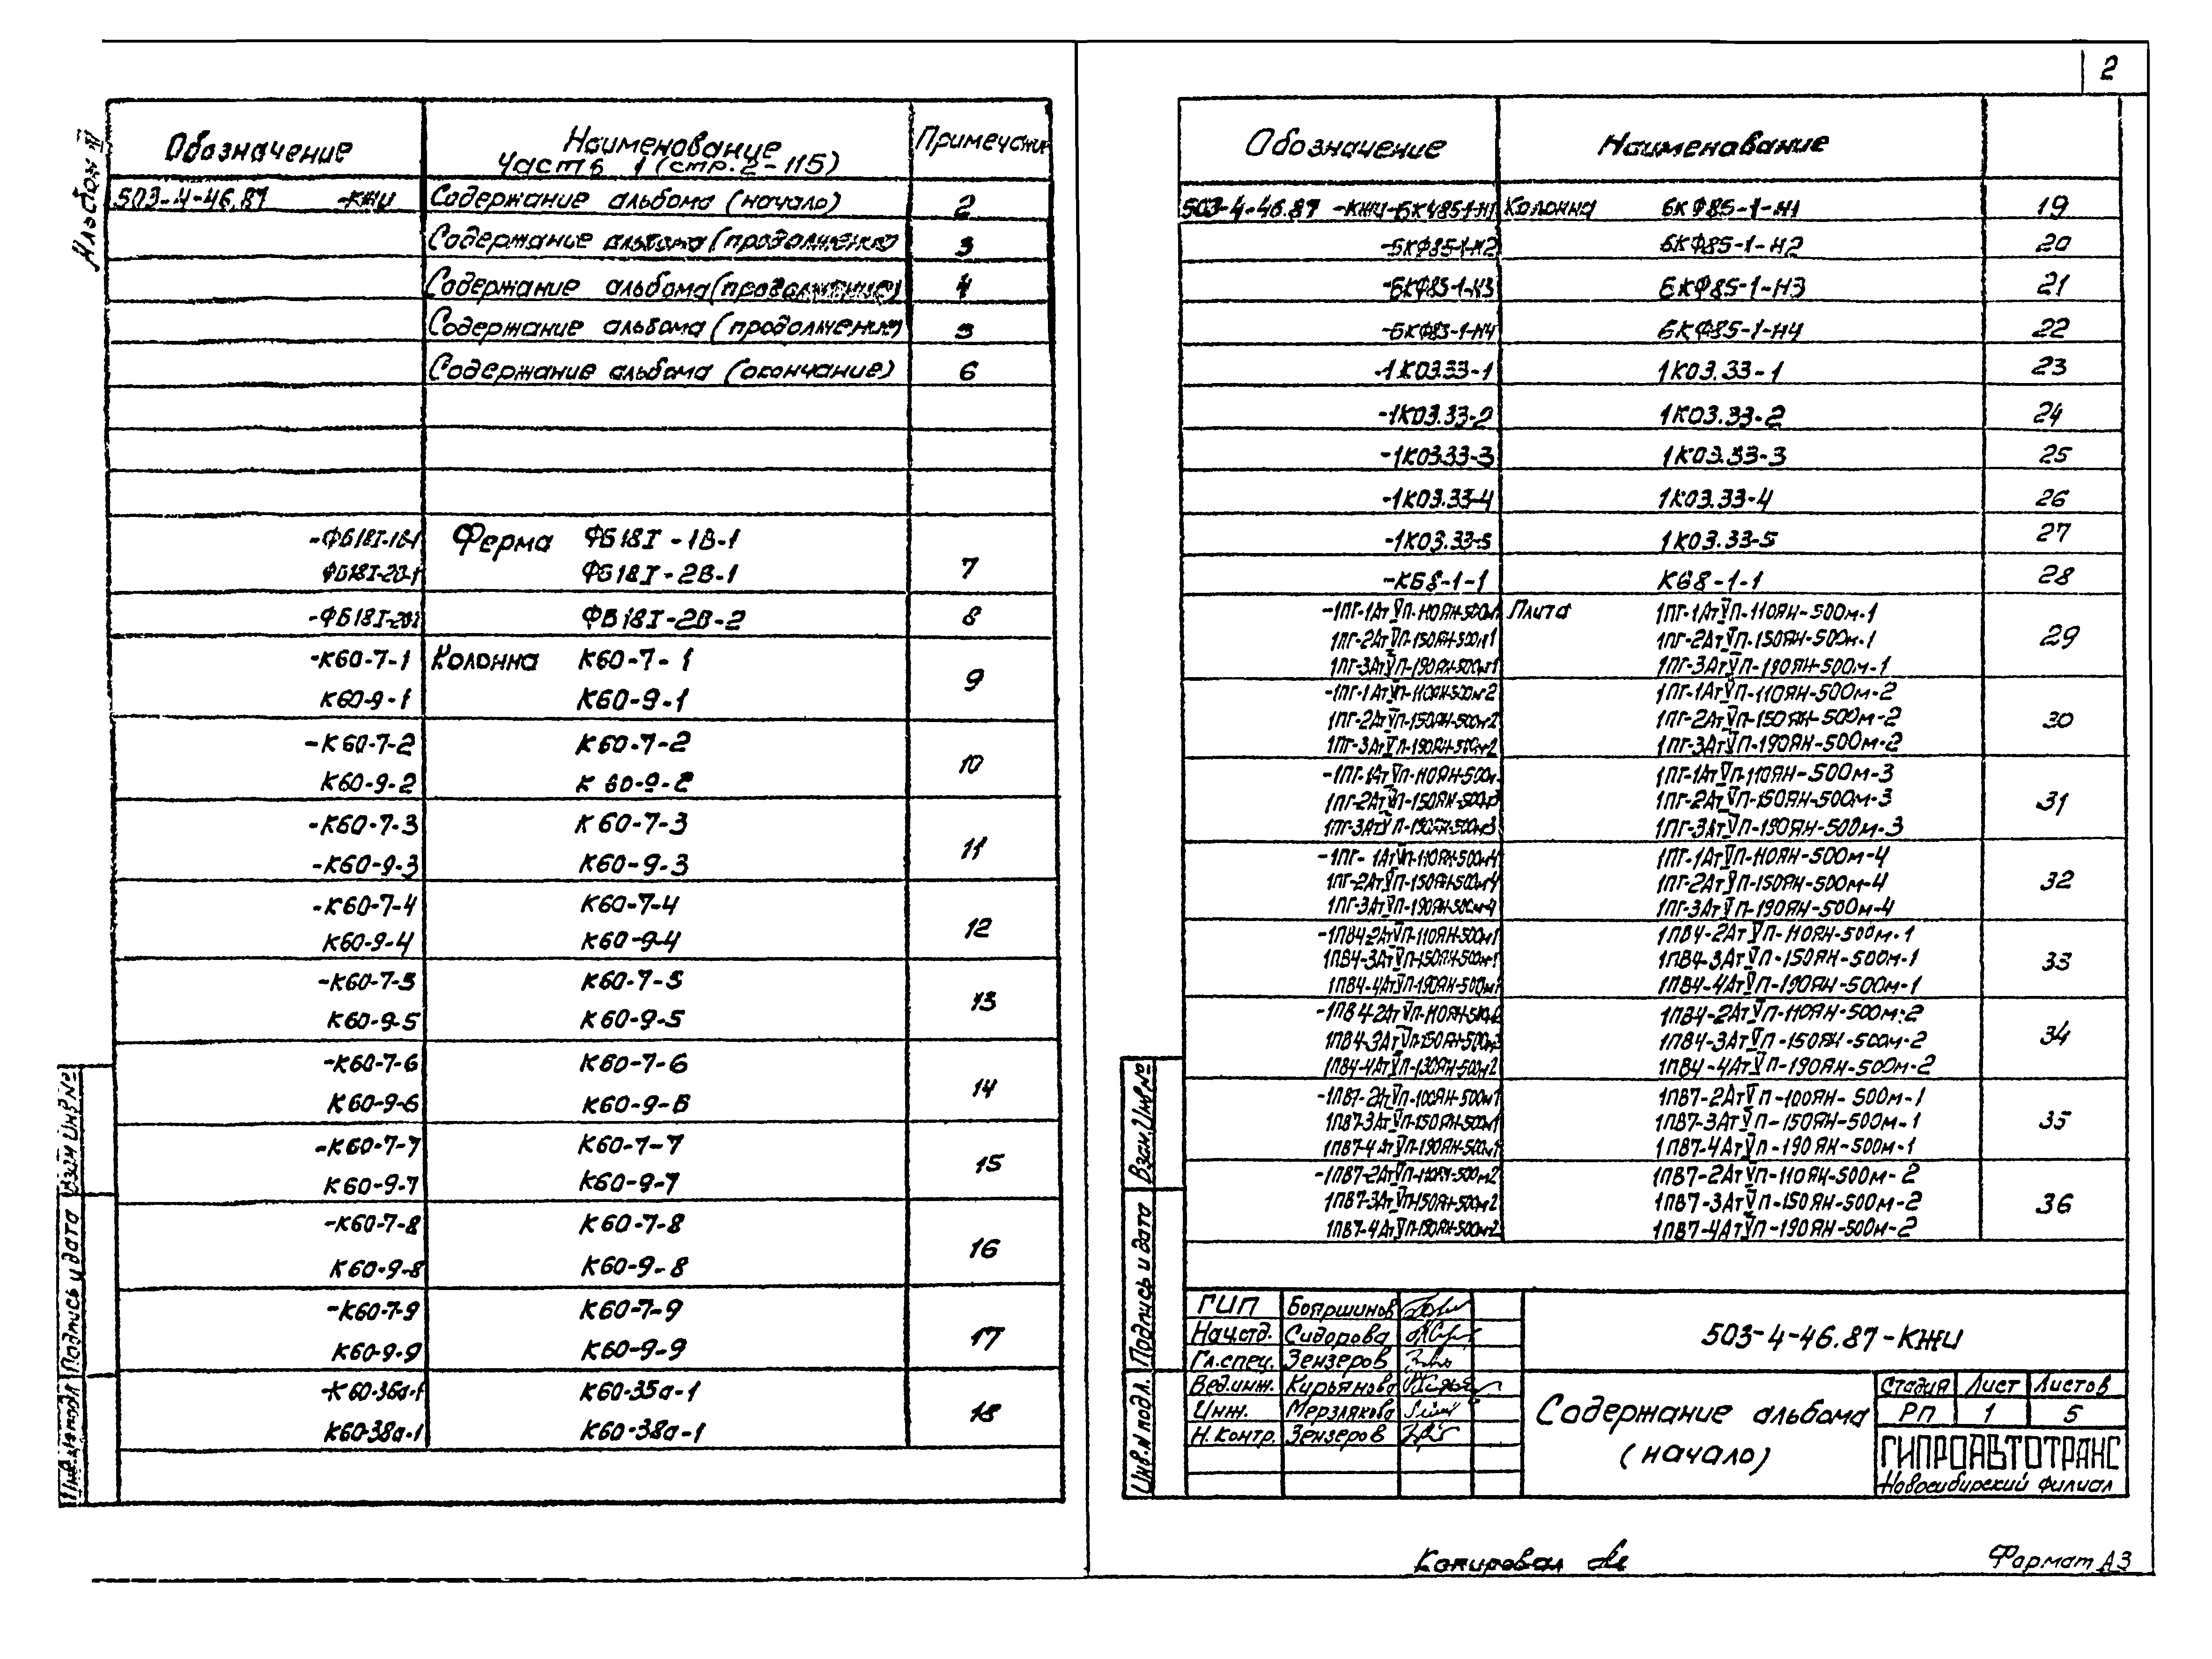 2
Альбом III
Обозначение Наименование Примечание
Часть 1 (стр.2-115)
503-4-46.87 -КЖИ Содержание альбома (начало) 2
Содержание альбома (продолжение) 3
Содержание альбома (продолжение) 4
Содержание альбома (продолжение) 5
Содержание альбома (окончание) 6
-ФБ18I-1В-1 Ферма ФБ18I-1В-1
ФБ18I-2В-1 ФБ18I-2В-1 7
-ФБ18I-2В2 ФБ18I-2В-2 8
-К60-7-1 Колонна К60-7-1
К60-9-1 К60-9-1 9
-К60-7-2 К60-7-2
К60-9-2 К60-9-2 10
-К60-7-3 К60-7-3
-К60-9-3 К60-9-3 11
-К60-7-4 К60-7-4
К60-9-4 К60-9-4 12
-К60-7-5 К60-7-5
К60-9-5 К60-9-5 13
-К60-7-6 К60-7-6
К60-9-6 К60-9-6 14
-К60-7-7 К60-7-7
К60-9-7 К60-9-7 15
-К60-7-8 К60-7-8
К60-9-8 К60-9-8 16
-К60-7-9 К60-7-9
К60-9-9 К60-9-9 17
-К60-36а-1 К60-35а-1
К60-38а-1 К60-38а-1 18
Взам Инв №
Подпись и дата
Инв.№ подл
Обозначение Наименование
503-4-46.87 -КЖИ-6КФ85-1-Н1 Колонна 6КФ85-1-Н1 19
-6КФ85-1-Н2 6КФ85-1-Н2 20
-6КФ85-1-Н3 6КФ85-1-Н3 21
-6КФ85-1-Н4 6КФ85-1-Н4 22
-1К03.33-1 1К03.33-1 23
-1К03.33-2 1К03.33-2 24
-1К03.33-3 1К03.33-3 25
-1К03.33-4 1К03.33-4 26
-1К03.33-5 1К03.33-5 27
-К68-1-1 К68-1-1 28
-1ПГ-1АтVП-110ЯН-500м1 Плита 1ПГ-1АтVП-110ЯН-500м-1
1ПГ-2АтVП-150ЯН-500м1 1ПГ-2АтVП-150ЯН-500м-1 29
1ПГ-3АтVП-190ЯН-500м1 1ПГ-3АтVП-190ЯН-500м-1
-1ПГ-1АтVП-110ЯН-500м2 1ПГ-1АтVП-110ЯН-500м-2
1ПГ-2АтVП-150ЯН-500м2 1ПГ-2АтVП-150ЯН-500м-2 30
1ПГ-3АтVП-190ЯН-500м2 1ПГ-3АтVП-190ЯН-500м-2
-1ПГ-1АтVП-110ЯН-500м 1ПГ-1АтVП-110ЯН-500м-3
1ПГ-2АтVП-150ЯН-500м3 1ПГ-2АтVП-150ЯН-500м-3 31
1ПГ-3АтVП-190ЯН-500м3 1ПГ-3АтVП-190ЯН-500м-3
-1ПГ-1АтVП-110ЯН-500м4 1ПГ-1АтVП-110ЯН-500м-4
1ПГ-2АтVП-150ЯН-500м4 1ПГ-2АтVП-150ЯН-500м-4 32
1ПГ-3АтVП-190ЯН-500м-4 1ПГ-3АтVП-190ЯН-500м-4
-1ПВ4-2АтVП-110ЯН-500м1 1ПВ4-2АтVП-110ЯН-500м-1
1ПВ4-3АтVП-150ЯН-500м-1 1ПВ4-3АтVП-150ЯН-500м-1 33
1ПВ4-4АтVП-190ЯН-500м1 1ПВ4-4АтVП-190ЯН-500м-1
-1ПВ4-2АтVП-110ЯН-500м2 1ПВ4-2АтVП-110ЯН-500м-2
1ПВ4-3АтVП-150ЯН-500м2 1ПВ4-3АтVП-150ЯН-500м-2 34
1ПВ4-4АтVП-190ЯН-500м2 1ПВ4-4АтVП-190ЯН-500м-2
-1ПВ7-2АтVП-100ЯН-500м1 1ПВ7-2АтVП-100ЯН-500м-1
1ПВ7-3АтVП-150ЯН-500м1 1ПВ7-3АтVП-150ЯН-500м-1 35
1ПВ7-4АтVП-190ЯН-500м1 1ПВ7-4АтVП-190ЯН-500м-1
-1ПВ7-2АтVП-110ЯН-500м2 1ПВ7-2АтVП-110ЯН-500м-2
1ПВ7-3АтVП-150ЯН-500м2 1ПВ7-3АтVП-150ЯН-500м-2 36
1ПВ7-4АтVП-190ЯН-500м2 1ПВ7-4АтVП-190ЯН-500м-2
Взам.Инв№
Подпись и дата
Инв.№ подл.
ГИП Бояршинов
Нач.отд. Сидорова
Гл.спец. Зензеров
Вед.инж. Кирьянова
Инж. Мерзлякова
Н.контр. Зензеров
503-4-46.87-КЖИ
Содержание альбома
(начало)
Стадия Лист Листов
РП 1 5
ГИПРОАВТОТРАНС
Новосибирский филиал
Копировал
Формат А3